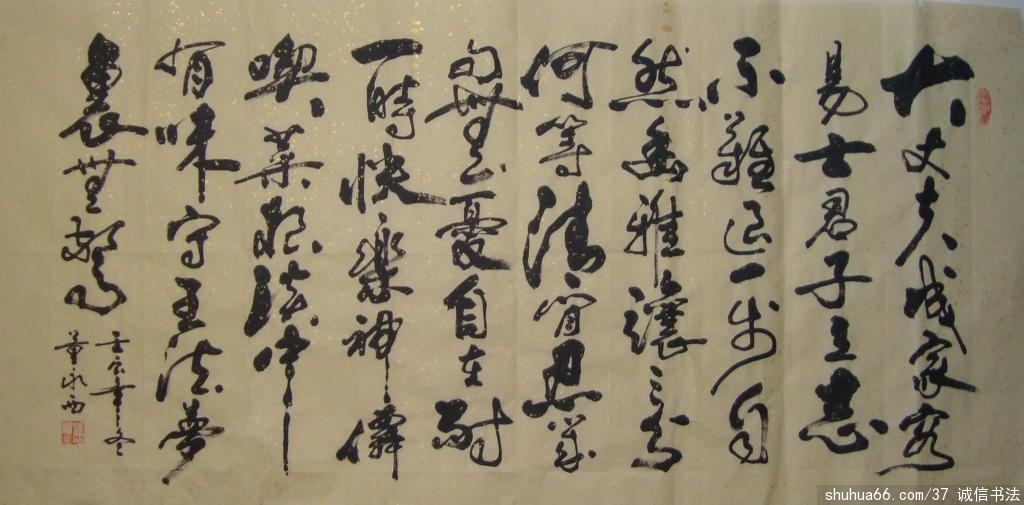 大丈夫成家容
易士君子立志
不難退一步自
然幽雅讓三分
何等清閒忍幾
句無憂自在耐
一時快樂神僊
喫菜根淡中
有味守王法夢
裏無驚
壬辰年冬
shuhua66.com/37 诚信书法